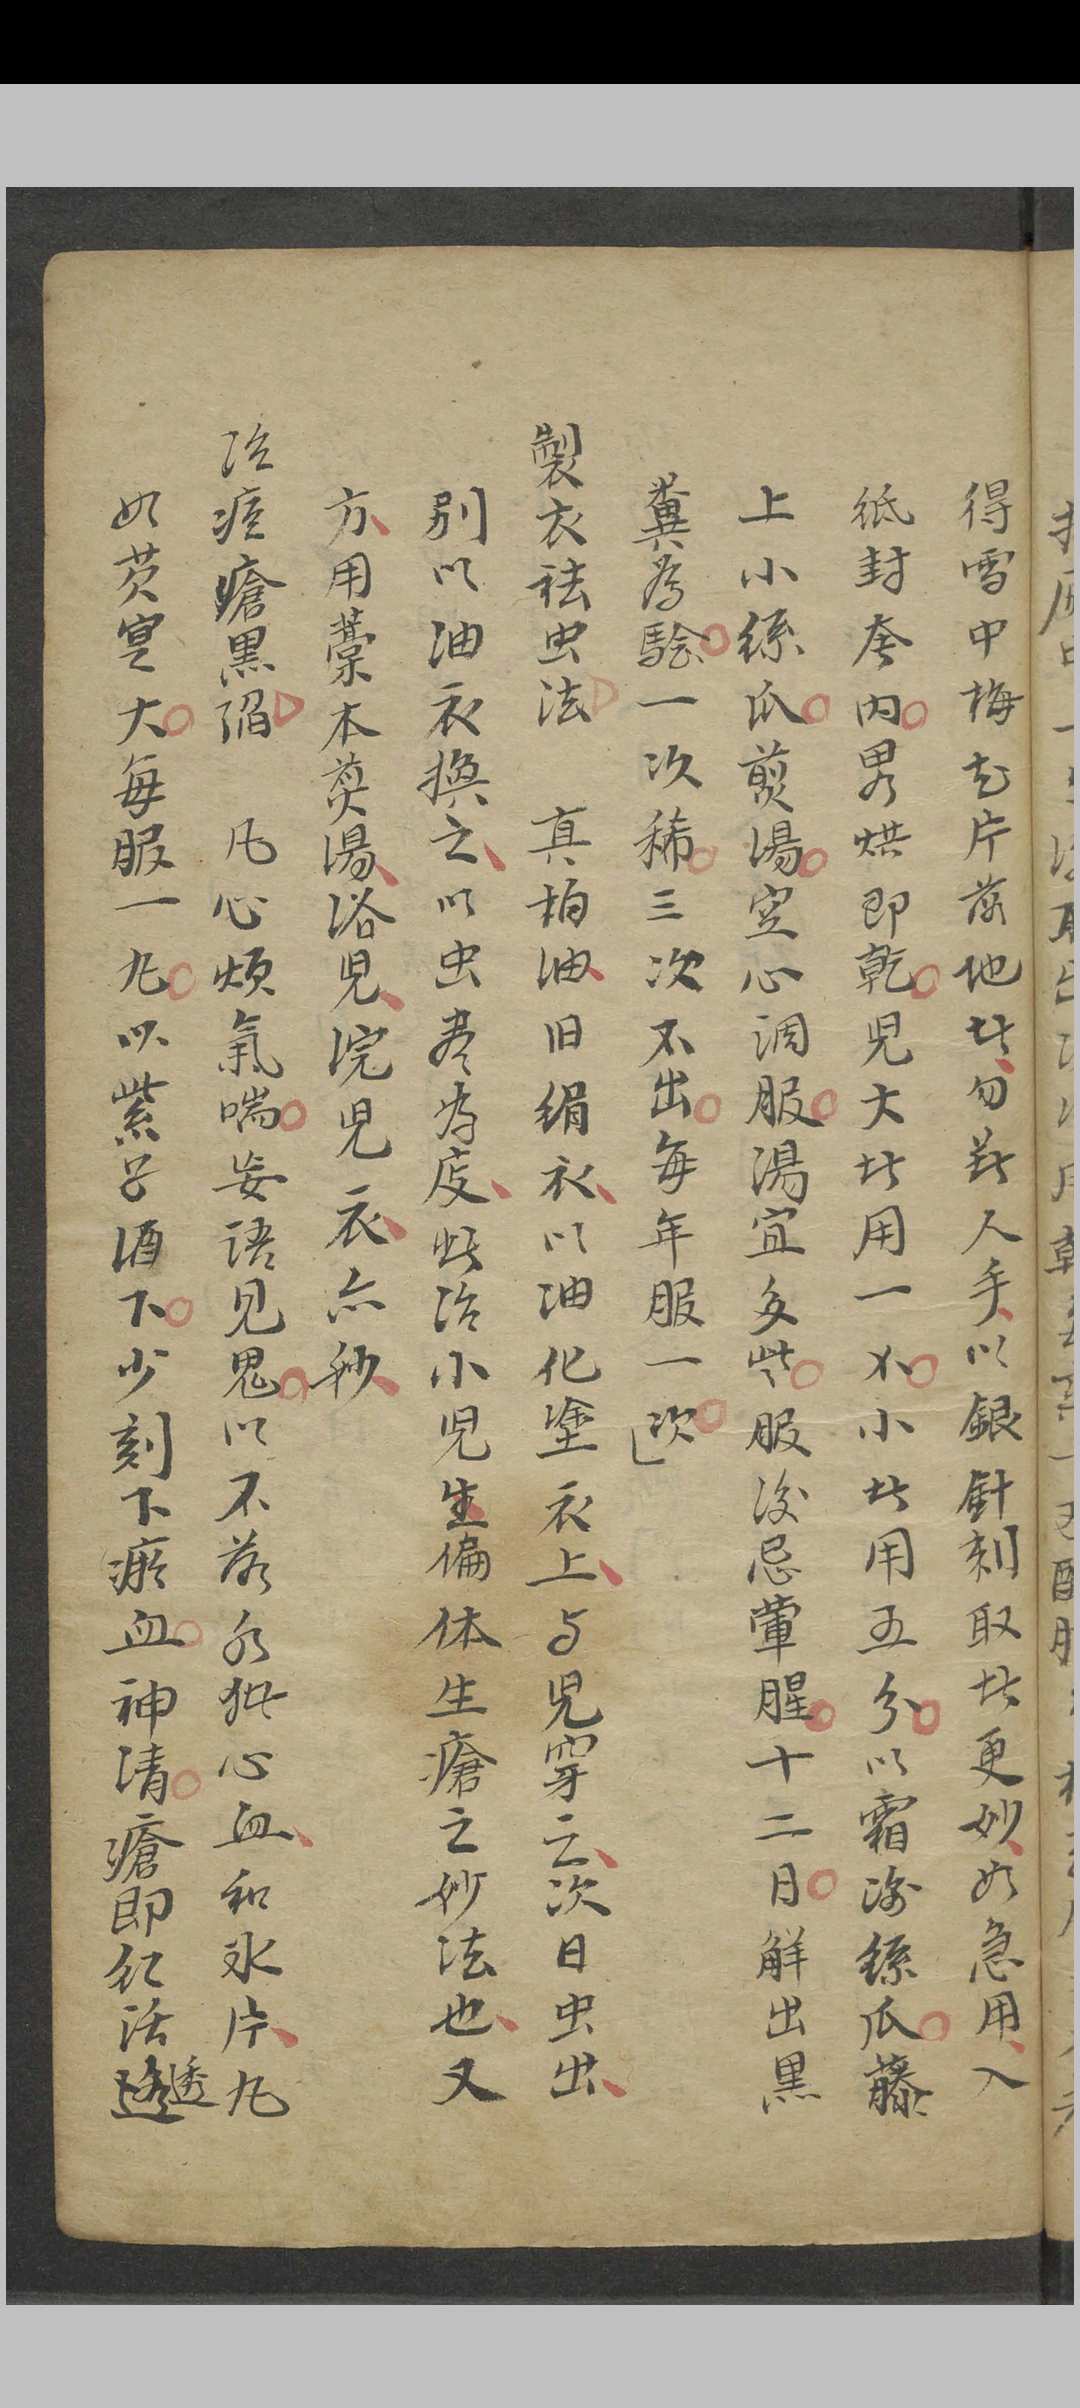 得雪中梅花片落地者勿犯人手以銀針刺取者更妙如急用入
紙封套内略烘即乾児大者用一个小者用五分以霜後絲瓜藤
上小絲瓜煎湯空心調服湯宜多些服後忌葷腥十二日解出黒
糞為驗一次稀三次不出每年服一次
製衣祛虫法 真柏油旧絹衣以油化塗衣上与児穿之次日虫出
别以油衣換之以虫尽為度此治小児生偏体生瘡之妙法也又
方用藁本煎湯浴児浣児衣亦妙
治痘瘡黒陷 凡心煩氣喘妄語見鬼以不落水猪心血和氷片丸
如芡實大每服一丸以紫艸酒下少刻下瘀血神清瘡即紅活透
透